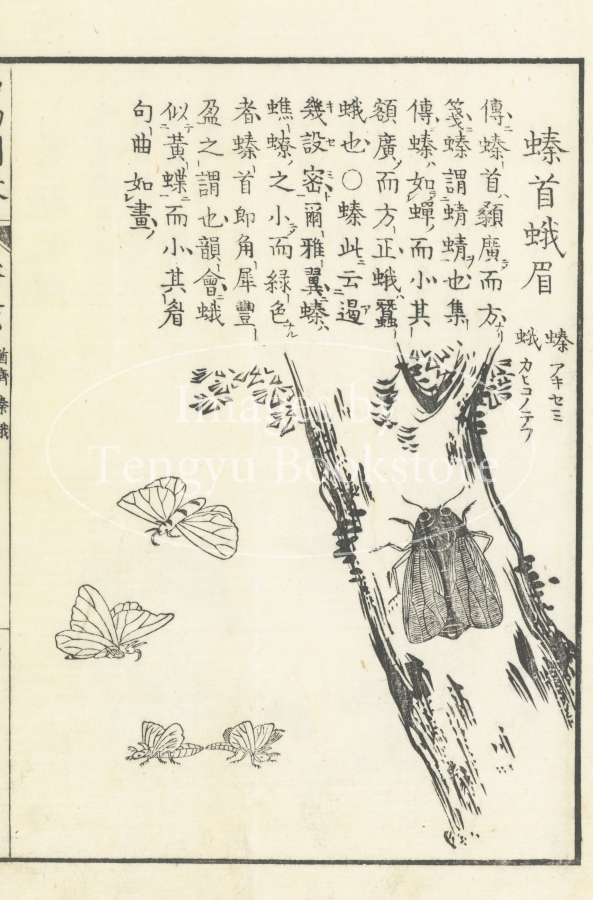 螓首蛾眉
螓 アキセミ
蛾 カヒコノテフ
傳螓首顙廣而方
箋螓謂蜻蜻也集
傳螓如蟬而小其
額廣而方正蛾蠶
蛾也○螓此云遏
幾設密爾雅翼螓
蟭蟟之小而綠色
者螓首即角犀豐
盈之謂也韻會蛾
似黃蝶而小其眉
句曲如畫
Images by
Tengyu Bookstore